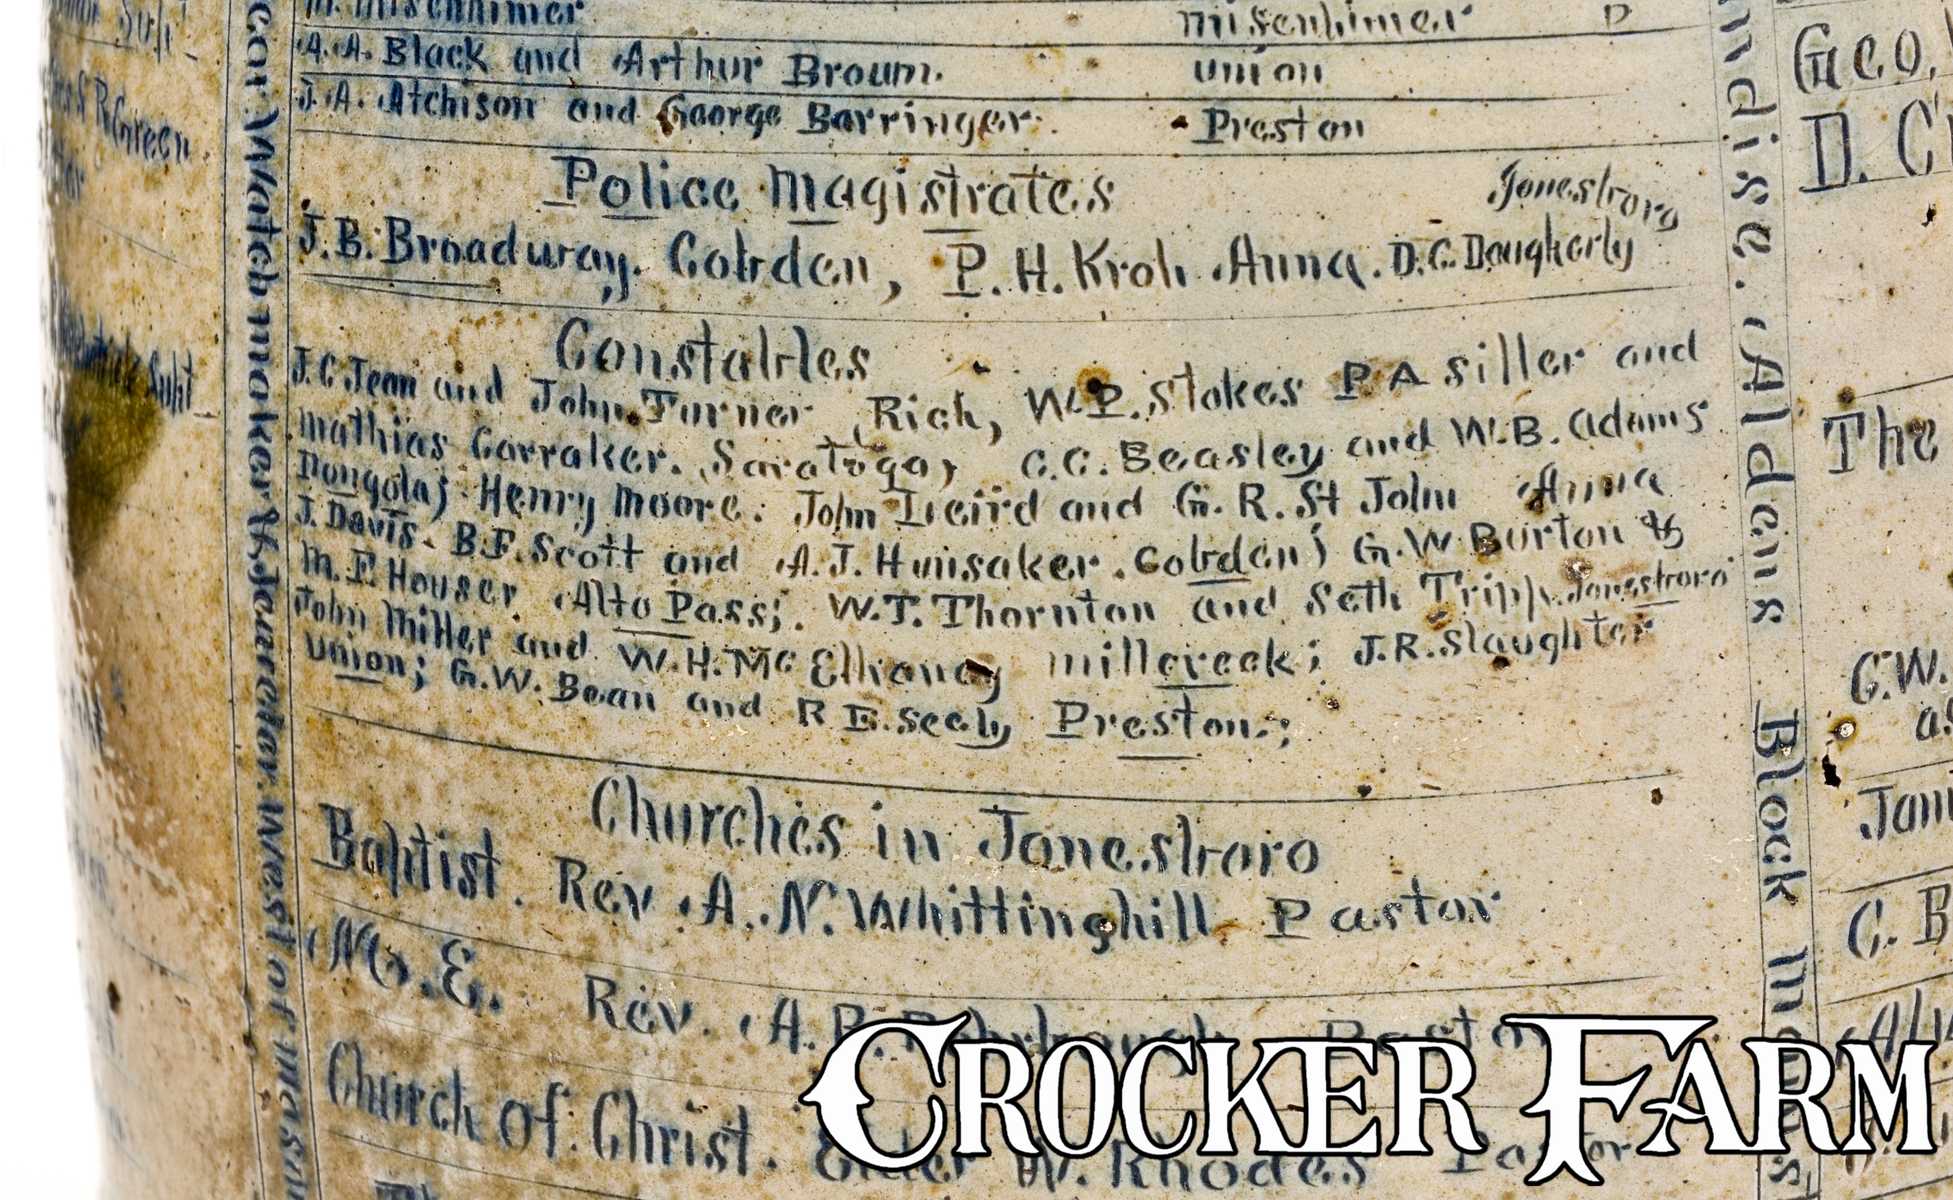 M. Misenhimer misenhimer D
A. A. Black and Arthur Broum. union
J. A. Atchison and George Barringer. Preston
Police Magistrates
Jonesboro
J. B. Broadway. Cobden, P. H. Kroh Anna. D. C. Dougherty
Constables
J. C. Jean and John Turner Rich, W. P. Stokes P A Siller and
mathias Carraker. Saratoga, C. C. Beasley and W. B. Adams
Dongola; Henry Moore. John Leird and G. R. St John Anna
J. Davis. B. F. Scott and A. J. Hunsaker. Cobden; G. W. Burton &
M. F. Houser Alto Pass; W. T. Thornton and Seth Tripp. Jonesboro
John Miller and W. H. Mc Elhaney millcreek; J. R. Slaughter
union; G. W. Bean and R E. Seely Preston;
Churches in Jonesboro
Baptist. Rev. A. N. Whittinghill Pastor
M. E. Rev. A.
Church of Christ. Elder W. Rhodes Pastor
Supt
R Green
Supt
car Watchmaker & Jeweler. West of mason
ndise. Aldens Block
Geo.
D. C
The
C. W.
C. B
CROCKER FARM